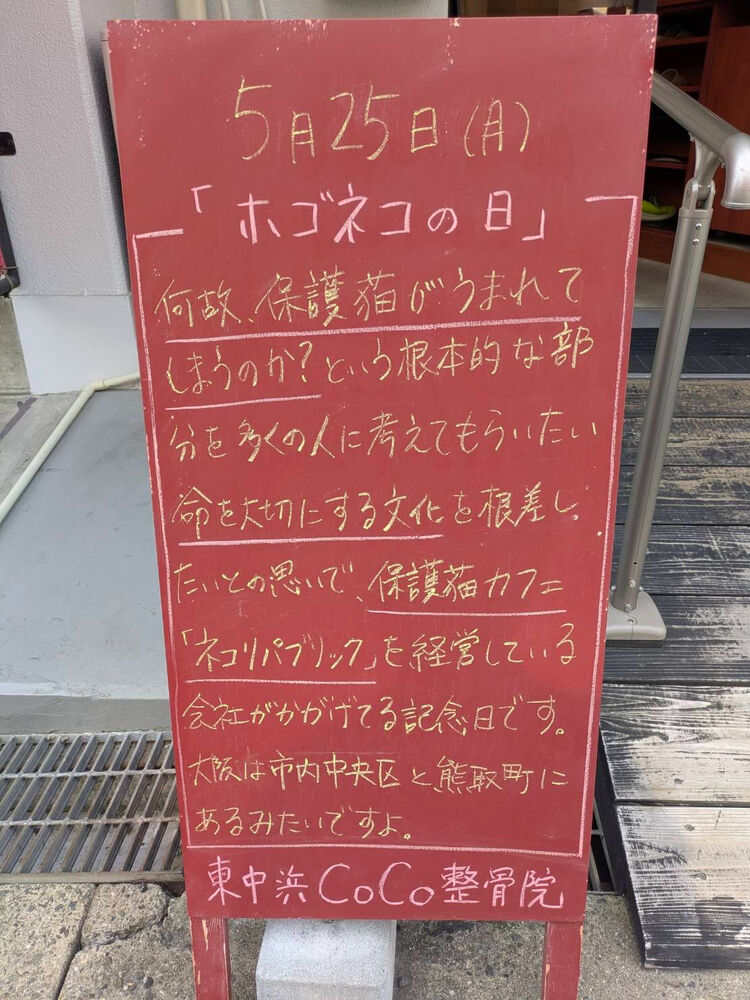 5月25日(月)
「ホゴネコの日」
何故、保護猫がうまれて
しまうのか?という根本的な部
分を多くの人に考えてもらいたい
命を大切にする文化を根差し
たいとの思いで、保護猫カフェ
「ネコリパブリック」を経営している
会社がかがげてる記念日です。
大阪は市内中央区と熊取町に
あるみたいですよ。
東中浜CoCo整骨院